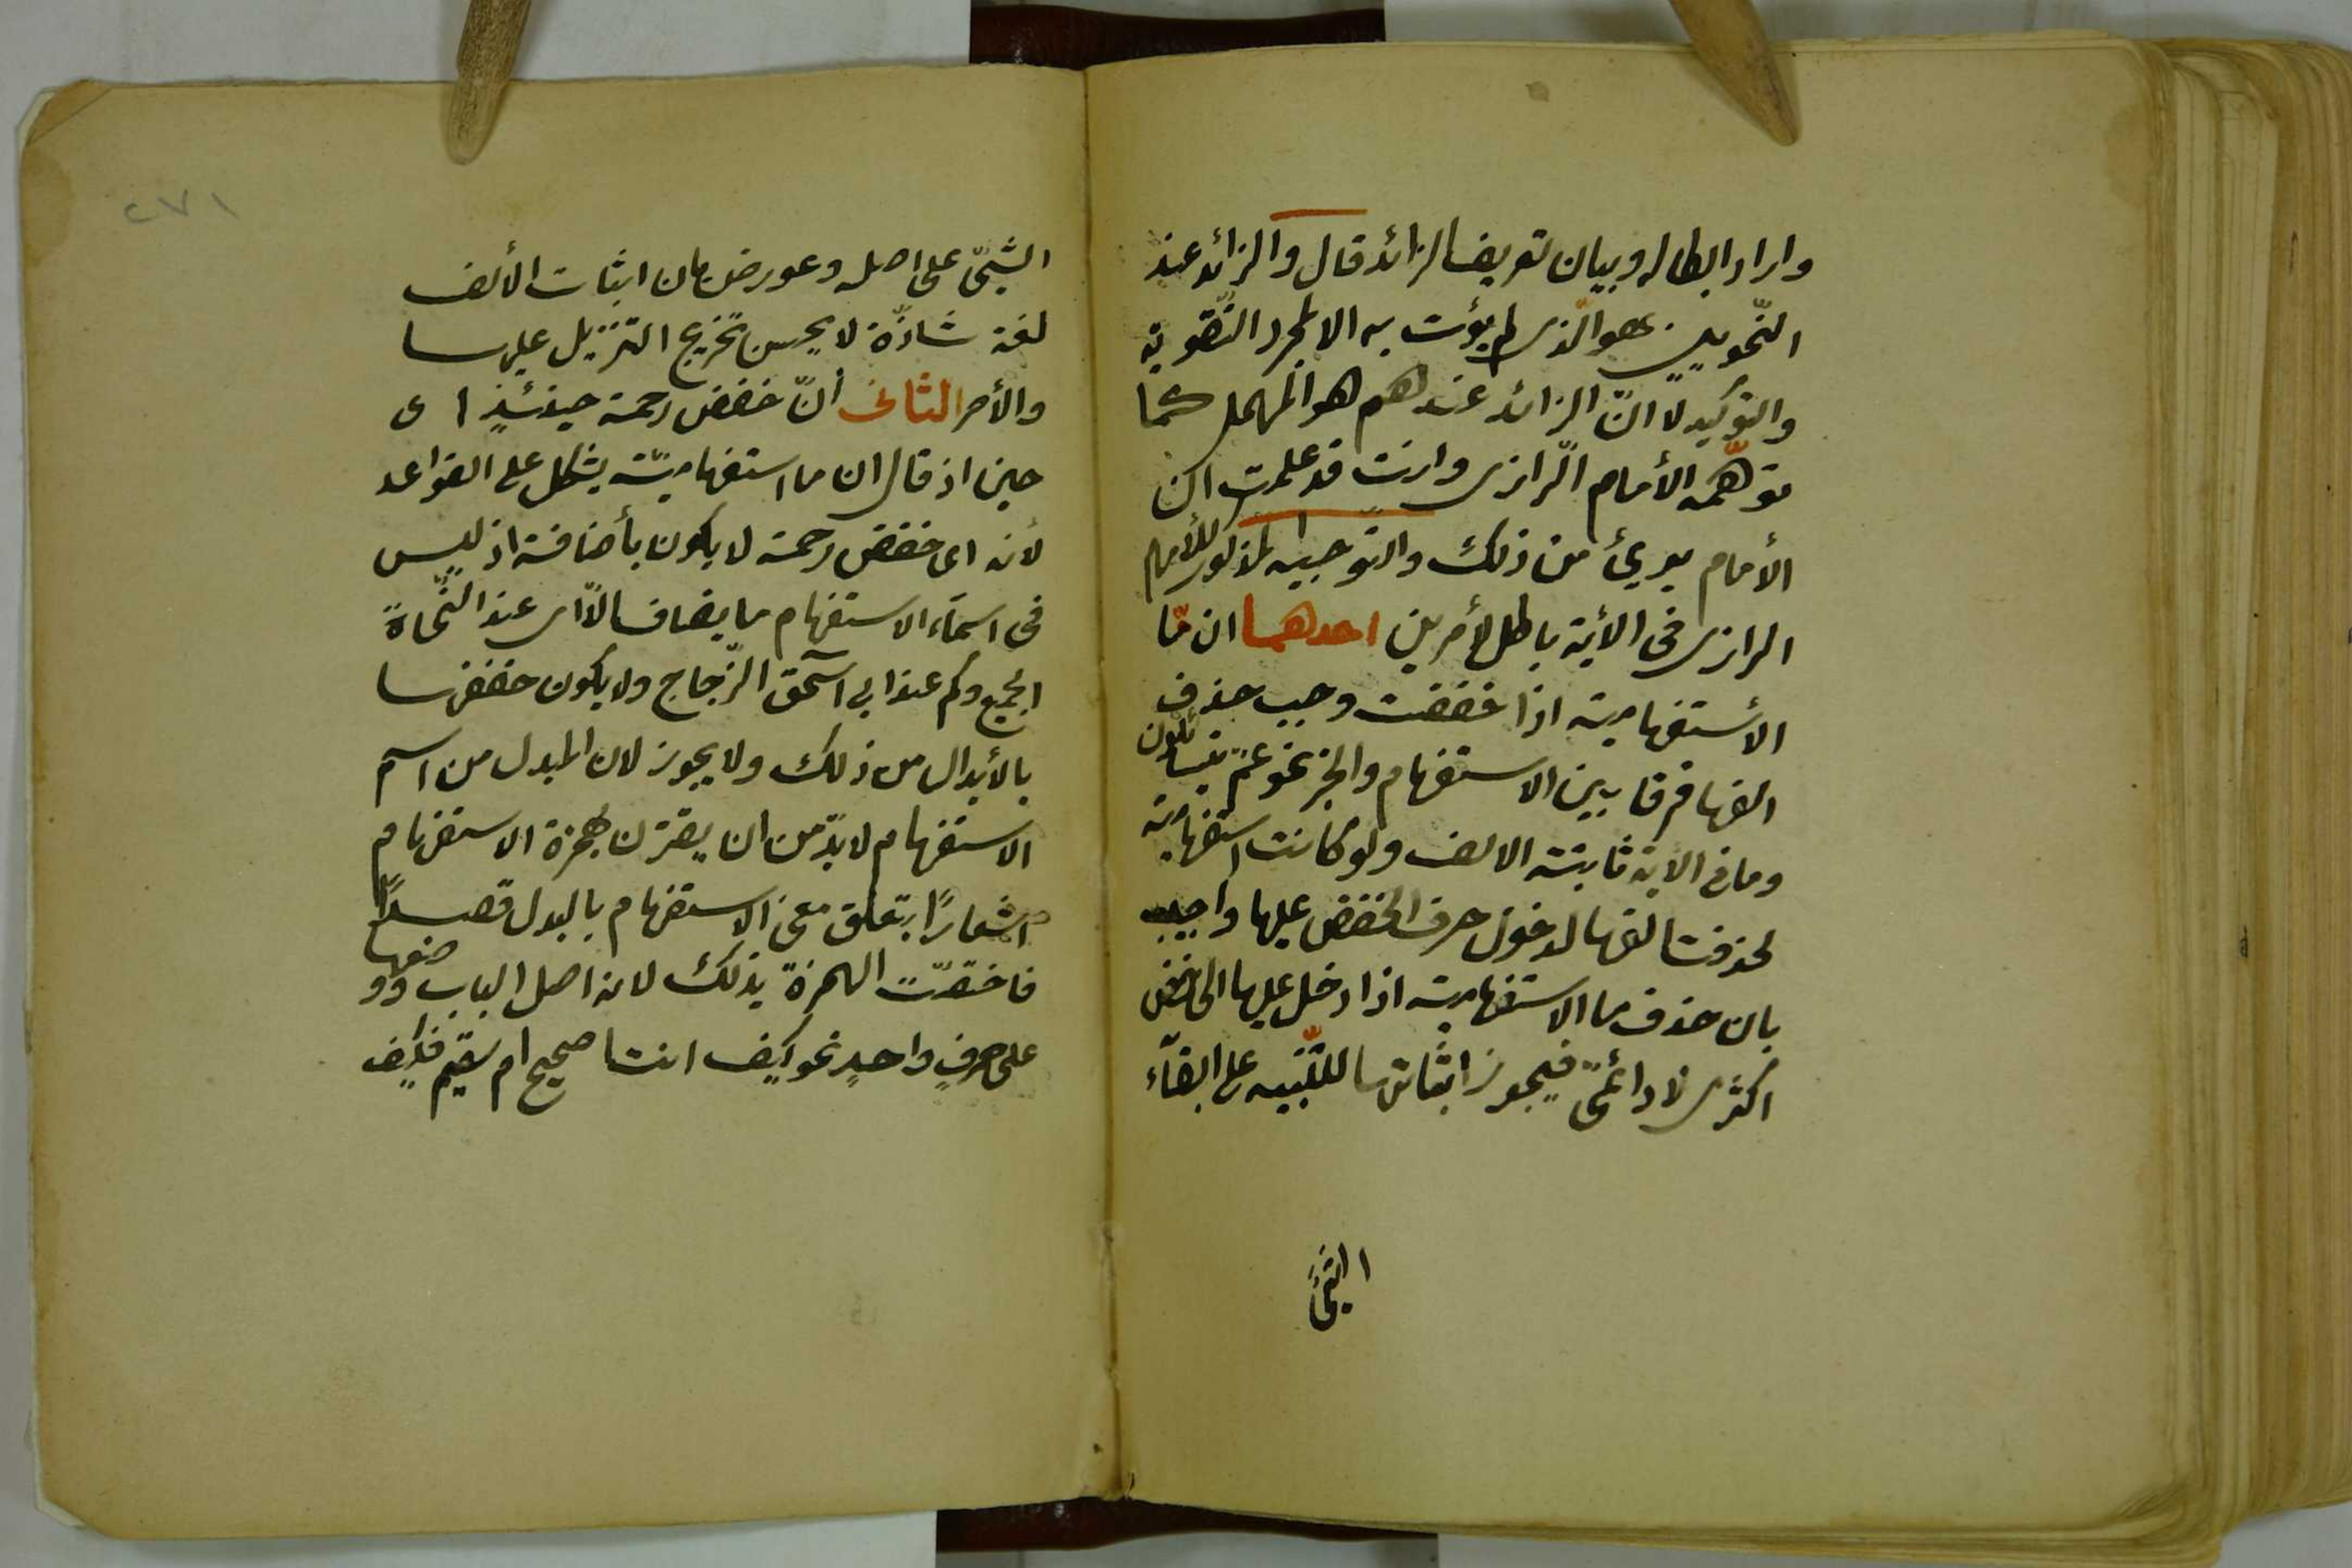 واراد ابطاله وبيان تعريف الزائد قال والزائد عند
النّحويين هو الّذى لم يؤت به الا لمجرد التّقوية
والتوكيد لا انّ الزائد عندهم هو المهمل كما
توهّمه الأمام الرّازى وانت قد علمت ان
الأمام برئ من ذلك والتوجيه المذكور للأمام
الرازى فى الأية باطل لأمرين احدهما ان مّا
الأستفهامية اذا خفضت وجب حذف
الفها فرقا بين الاستفهام والخبر نحو عمّ يتسائلون
وما فى الاية ثابتة الالف ولو كانت استفهامية
لحذفت الفها لدخول حرف الخفض عليها واجيب
بان حذف ما الاستفهامية اذا دخل عليها الخافض
اكثرى لا دائمىّ فيجوز اثباتها للتّنبيه على ابقآء
الشئ
٢٧١
الشّئ على اصله وعورض بان اثبات الألف
لغة شاذّة لا يحسن تخريج التنزيل عليها
والأمر الثانى أنّ خفض رحمة حينئذٍ اى
حين اذ قال ان ما استفهاميّة يشكل على القواعد
لأنه اى خفض رحمة لا يكون بأضافة اذ ليس
فى اسمآء الاستفهام ما يضاف الاّ اى عند النّحاة
الجميع وكم عند ابى اسحق الزّجاج ولا يكون خفضها
بالأبدال من ذلك ولا يجوز لان المبدل من اسم
الاستفهام لابدّ من ان يقترن بهمزة الاستفهام
اشعارًا بتعلق معنى الاستفهام بالبدل قصدًا
فاختصّت الهمزة بذلك لانه اصل الباب ووضعها
على حرفٍ واحدٍ نحو كيف انت اصحيح ام سقيم فكيف